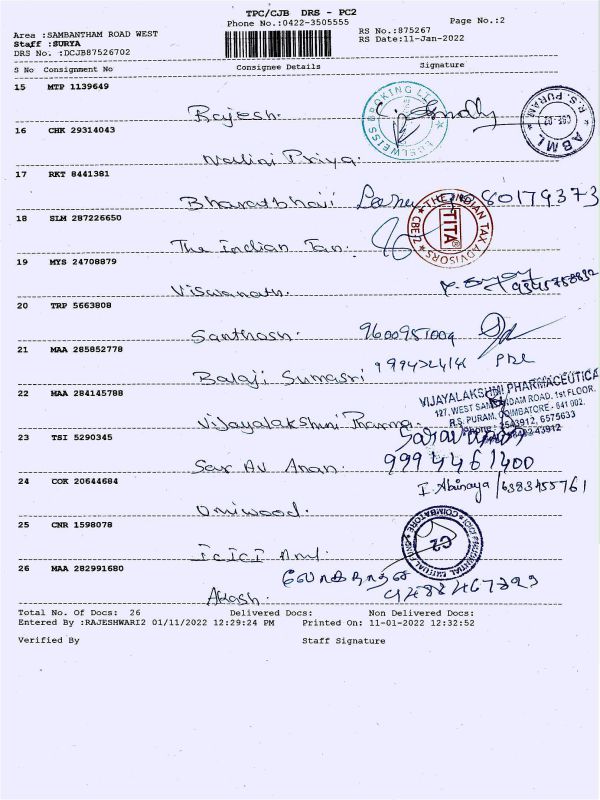 TPC/CJB DRS - PC2
Phone No.:0422-3505555
Page No.:2
Area :SAMBANTHAM ROAD WEST
RS No.:875267
Staff :SURYA
RS Date:11-Jan-2022
DRS No. :DCJB87526702
S No Consignment No Consignee Details Signature
15 MTP 1139649
Rajesh.
EDELWEISS BROKING LTD
R.S. PURAM
CBE-02
ABML
16 CHK 29314043
Nalini Priya.
17 RKT 8441381
Bharatbhaii
80179373
18 SLM 287226650
The Indian Tan.
THE INDIAN TAX ADVISORS
CBE-2
TITA
19 MYS 24708879
Viswanath.
20 TRP 5663808
Santhosh. 9600951009
21 MAA 285852778
Balaji Sumasri
22 MAA 284145788
VIJAYALAKSHMI PHARMACEUTICA
127, WEST SAMBANDAM ROAD, 1st FLOOR,
R.S. PURAM, COIMBATORE - 641 002.
Phone : 2543912, 6575633
Vijayalakshmi Pharma.
23 TSI 5290345
Saravanan
Sar Av Anan. 9994461400
24 COK 20644684
I. Abinaya / 6383455761
Uniwood.
25 CNR 1598078
ICICI PRUDENTIAL MUTUAL FUND
COIMBATORE
C2
icici Aml.
26 MAA 282991680
Akash.
9488467399
Total No. Of Docs: 26 Delivered Docs: Non Delivered Docs:
Entered By :RAJESHWARI2 01/11/2022 12:29:24 PM Printed On: 11-01-2022 12:32:52
Verified By Staff Signature